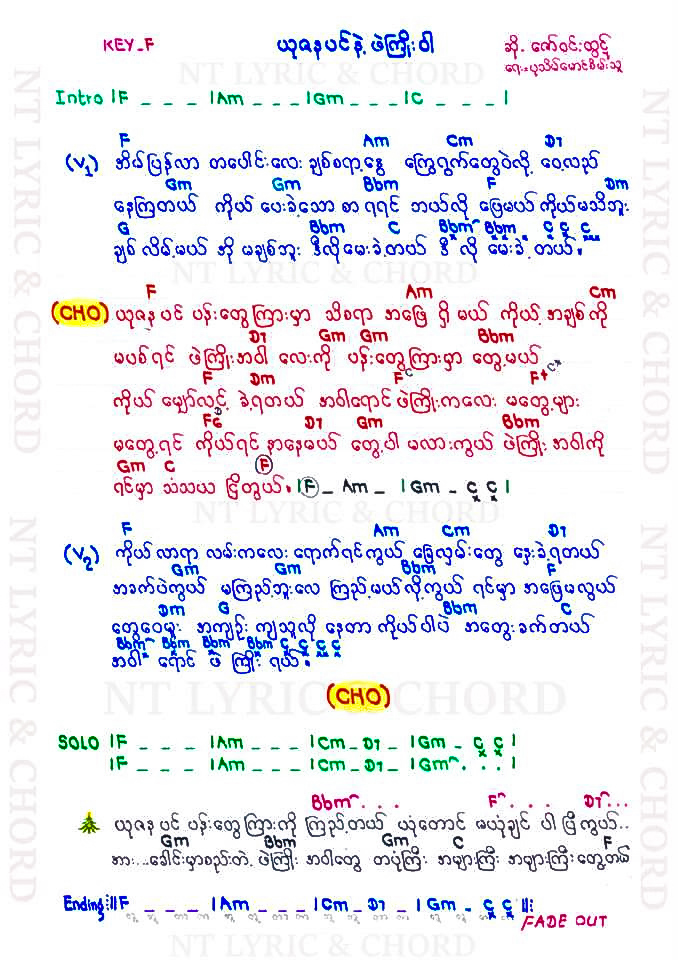 KEY_F ယုဇနပင်နဲ့ ဖဲကြိုးဝါ ဆို. ဇော်ဝင်းထွဋ်
ရေး=ပုသိမ်မောင်စိမ်းသူ
NT LYRIC & CHORD
Intro |F _ _ _ |Am _ _ _ |Gm _ _ _ |C _ _ _ |
F Am Cm D7
(V1) အိမ်ပြန်လာ တပေါင်းလေး ချစ်စရာ့နွေ ကြွေရွက်တွေဝဲလို့ ဝေ့လည်
Gm Gm Bbm F Dm
နေကြတယ် ကိုယ် ပေးခဲ့သော စာ ရရင် ဘယ်လို ဖြေမယ် ကိုယ်မသိဘူး
G Bbm C Bbm Bbm C C C
ချစ် လိမ့်မယ် ဘို မချစ်ဘူး ဒီလိုမေးခဲ့တယ် ဒီ လို မေးခဲ့ တယ်.
NT LYRIC & CHORD
F Am Cm
(CHO) ယုဇန ပင် ပန်းတွေကြားမှာ သိစရာ အဖြေ ရှိ မယ် ကိုယ့် အချစ်ကို
D7 Gm Gm Bbm
မပစ်ရင် ဖဲကြိုးအဝါ လေးကို ပန်းတွေကြားမှာ တွေ့မယ်
F Dm F C F+ C
ကိုယ် မျှော်လင့် ခဲ့ရတယ် အဝါရောင်ဖဲကြိုးကလေး မတွေ့များ
F6 D7 Gm Bbm
မတွေ့ရင် ကိုယ်ရင် နာနေမယ် တွေ့ပါ မလားကွယ် ဖဲကြိုး အဝါကို
Gm C F
ရင်မှာ သံသယ ငြိတွယ်. |F _ Am _ |Gm _ C C |
NT LYRIC & CHORD
F Am Cm D7
(V2) ကိုယ်လာရာ လမ်းကလေး ရောက်ရင်ကွယ် ခြေလှမ်းတွေ နှေးခဲ့ရတယ်
Gm Gm Bbm F
အခက်ပဲကွယ် မကြည့်ဘူးလေ ကြည့်မယ်လို့ကွယ် ရင်မှာ အဖြေမလွယ်
Dm G Bbm C
တွေဝေမှု အကျဉ်း ကျသူလို နေတာ ကိုယ်ပါပဲ အတွေးခက်တယ်
Bbm Bbm Bbm Bbm C C C C
အဝါ ရောင် ဖဲ ကြိုး ရယ်.
NT LYRIC & CHORD
(CHO)
SOLO |F _ _ _ |Am _ _ _ |Cm _ D7 _ |Gm _ C C |
|F _ _ _ |Am _ _ _ |Cm _ D7 _ |Gm . . . |
Bbm . . . F . . . D7 . . .
ယုဇန ပင် ပန်းတွေကြားကို ကြည့်တယ် ယုံတောင် မယုံချင် ပါ ပြီကွယ်..
Gm Bbm Gm C F
အား...ခေါင်းမှာစည်းတဲ့ ဖဲကြိုး အဝါတွေ တပုံကြီး အများကြီး အများကြီးတွေ့တယ်
Ending :||F _ _ _ |Am _ _ _ |Cm _ D7 _ |Gm _ C C ||:
FADE OUT
NT LYRIC & CHORD
NT LYRIC & CHORD
NT LYRIC & CHORD
NT LYRIC & CHORD
NT LYRIC & CHORD